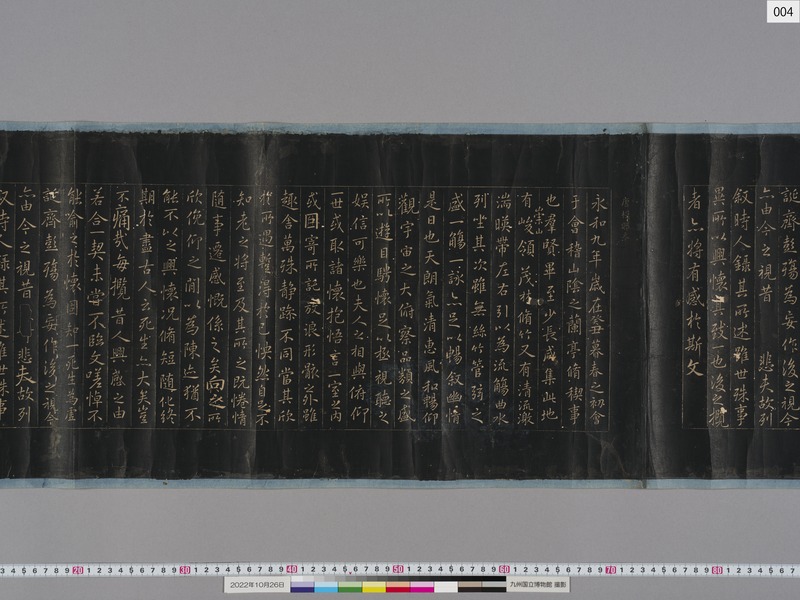 004
誕齊彭殤為妄作後之視今
亦由今之視昔 悲夫故列
叙時人錄其所述雖世殊事
異所以興懷其致一也後之攬
者亦將有感於斯文
永和九年歲在癸丑暮春之初會
于會稽山陰之蘭亭脩禊事
也羣賢畢至少長咸集此地
崇山
有峻領茂林脩竹又有清流激
湍暎帶左右引以為流觴曲水
列坐其次雖無絲竹管弦之
盛一觴一詠亦足以暢叙幽情
是日也天朗氣清惠風和暢仰
觀宇宙之大俯察品類之盛
所以遊目騁懷足以極視聽之
娛信可樂也夫人之相與俯仰
一世或取諸懷抱悟言一室之內
或因寄所託放浪形骸之外雖
趣舍萬殊靜躁不同當其欣
於所遇暫得於己怏然自足不
知老之將至及其所之既惓情
隨事遷感慨係之矣向之所
欣俛仰之間以為陳迹猶不
能不以之興懷况脩短隨化終
期於盡古人云死生亦大矣豈
不痛哉每攬昔人興感之由
若合一契未嘗不臨文嗟悼不
能喻之於懷固知一死生為虛
誕齊彭殤為妄作後之視今
亦由今之視昔 悲夫故列
叙時人錄其所述雖世殊事
2022年10月26日
九州国立博物館 撮影